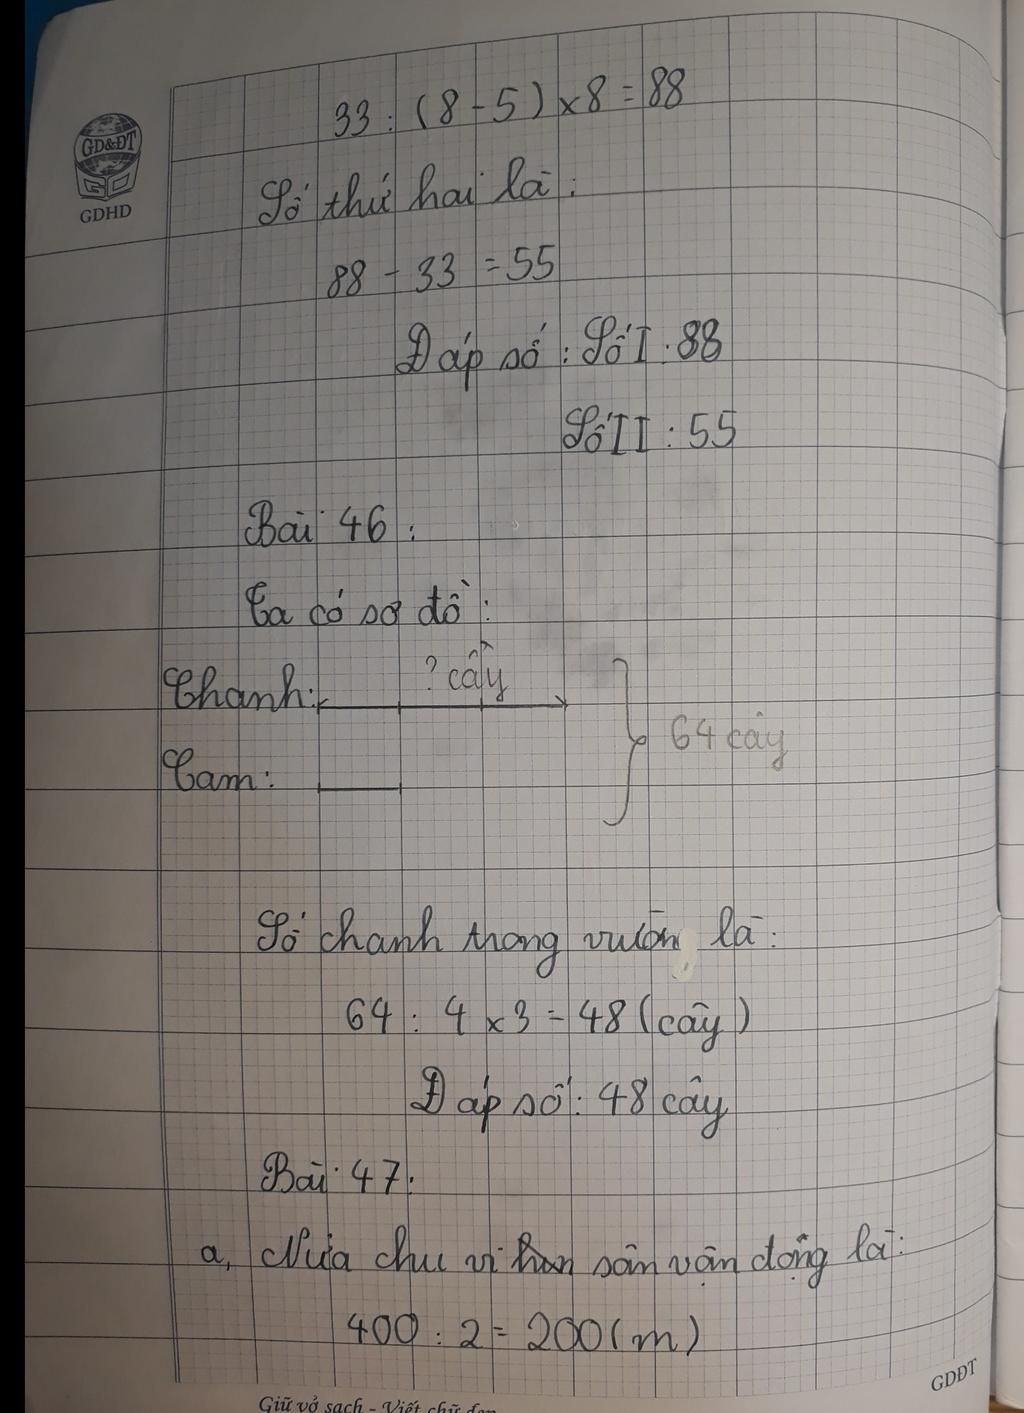 GD&ĐT
GDHD
33 : (8 - 5) x 8 = 88
Số thứ hai là :
88 - 33 = 55
Đáp số : Số I : 88
Số II : 55
Bài 46 :
Ta có sơ đồ :
Chanh: ? cây
64 cây
Cam:
Số chanh trong vườn là :
64 : 4 x 3 = 48 (cây)
Đáp số : 48 cây
Bài 47 :
a, Nửa chu vi sân vận động là :
400 : 2 = 200 (m)
GDĐT
Giữ vở sạch - Viết chữ đẹp